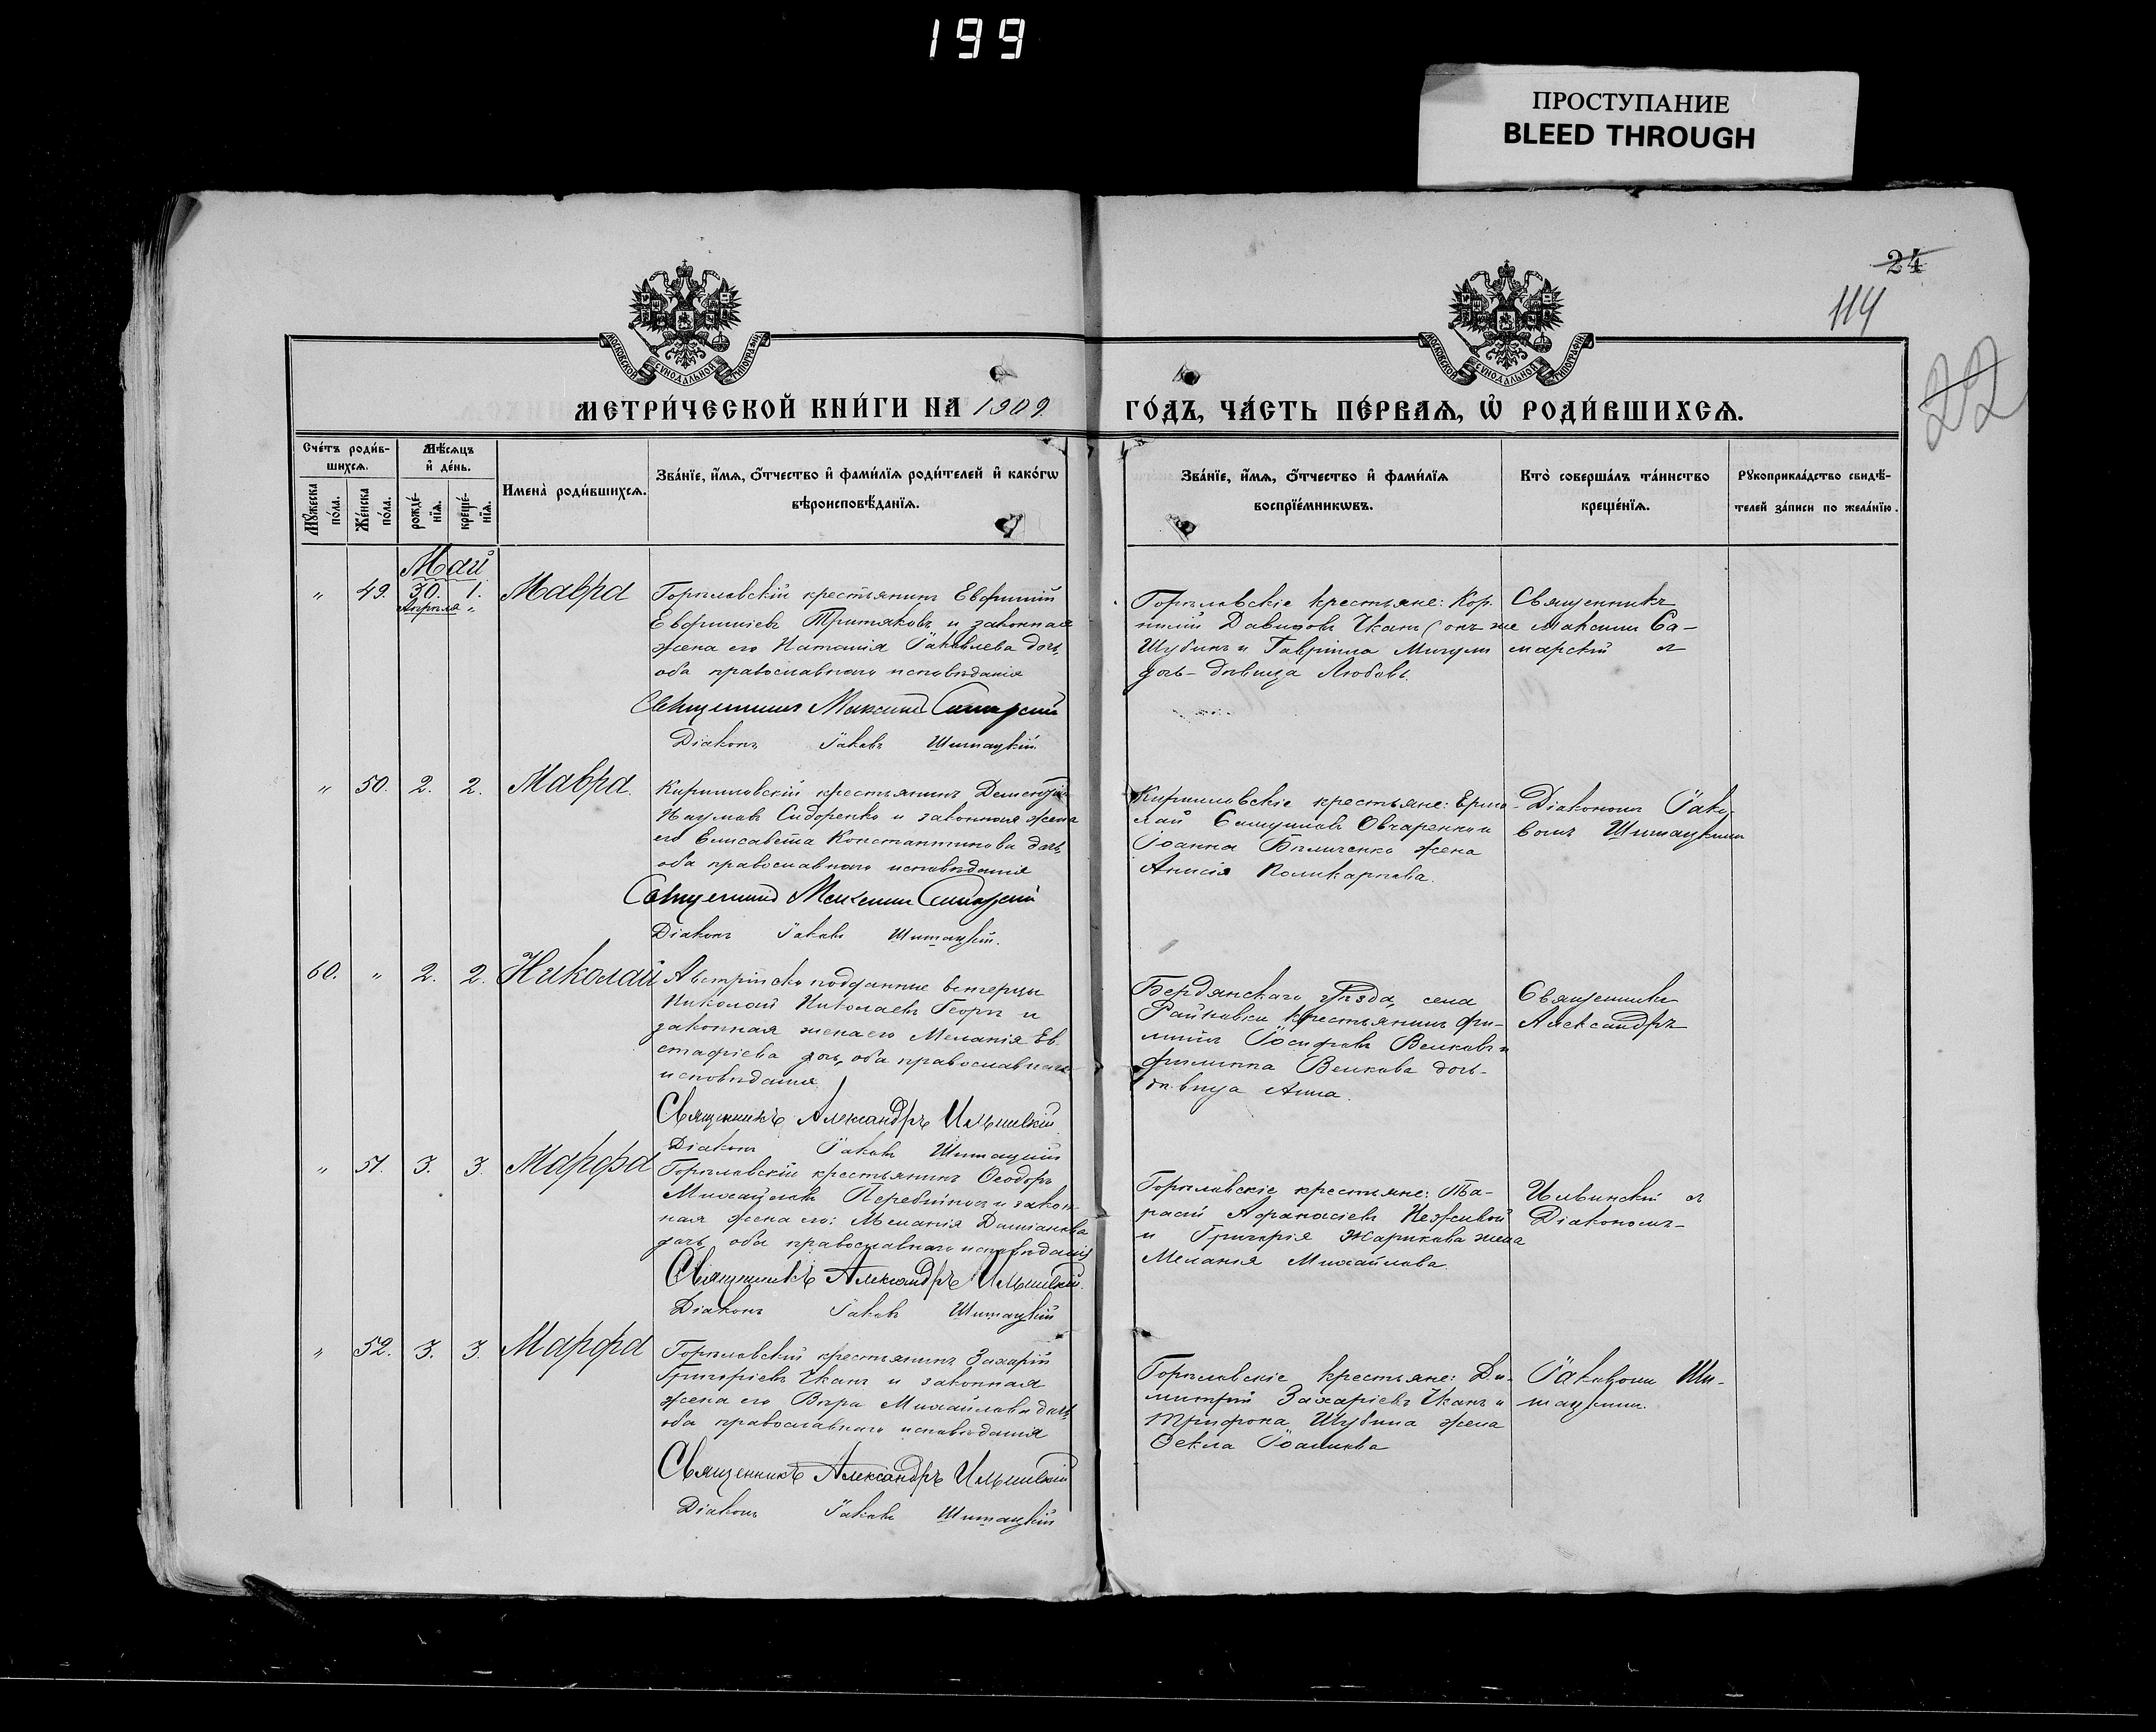 199
ПРОСТУПАНИЕ
BLEED THROUGH
24
114
22
МОСКОВСКОЙ СѴНОДАЛЬНОЙ ТИПОГРАФІИ
МОСКОВСКОЙ СѴНОДАЛЬНОЙ ТИПОГРАФІИ
МЕТРИ́ЧЕСКОЙ КНИ́ГИ НА 1909
ГО́ДЪ, ЧА́СТЬ ПЕ́РВАѦ, Ѡ҆ РОДИ́ВШИХСѦ.
Сче́тъ роди́в-
шихсѧ.
Мꙋ́жеска
по́ла.
Же́нска
по́ла.
Мѣ́сѧцъ
и҆ де́нь.
рожде́-
нїѧ.
креще́-
нїѧ.
Имена̀ роди́вшихсѧ.
Зва́нїе, и҆́мѧ, ѻ҆́тчество и҆ фами́лїѧ роди́телей и҆ како́гѡ
вѣроисповѣ́данїѧ.
Зва́нїе, и҆́мѧ, ѻ҆́тчество и҆ фами́лїѧ
воспрїе́мникѡвъ.
Кто̀ соверша́лъ та́инство
креще́нїѧ.
Рꙋкоприкла́дство свидѣ́-
телей за́писи по жела́нїю.
Май
„ 49. 30. 1. Мавра
Апрѣля „
Горѣловскій крестьянинъ Евфимій
Евфиміевъ Третьяковъ и законная
жена его Наталія Іаковлева дочь,
оба православнаго исповѣданія
Священникъ Максимъ Самарскій
Діаконъ Іаковъ Шитацкій.
Горѣловскіе крестьяне: Кор-
нилій Давидовъ Чканъ (онъ же
Шубинъ и Гавріила
дочь- дѣвица Любовь.
Священникъ
Максимъ Са-
марскій и
„ 50. 2. 2. Мавра.
Кирилловскій крестьянинъ Дементій
Наумовъ Сидоренко и законная жена
его Елисавета Константинова дочь,
оба православнаго исповѣданія
Священникъ Максимъ Самарскій
Діаконъ Іаковъ Шитацкій.
Кирилловскіе крестьяне: Ермо-
лай Самуиловъ Овчаренко и
Іоанна Бѣличенко жена
Анисія Поликарпова.
Діакономъ Іако-
вомъ Шитацкимъ
60. „ 2. 2. Николай
Австрійско подданные венгерцы
Николай Николаевъ Георъ и
законная жена его Меланія Ев-
стафіева дочь, оба православнаго
исповѣданія
Священникъ Александръ Ильинскій
Діаконъ Іаковъ Шитацкій
Бердянскаго уѣзда, села
Райновки крестьянинъ Фи-
липпъ Іосифовъ Велковъ и
Филиппа Велкова дочь-
дѣвица Анна.
Священникъ
Александръ
„ 51. 3. 3. Марфа
Горѣловскій крестьянинъ Ѳеодоръ
Михайловъ Перебийносъ и закон-
ная жена его: Меланія Даміанова
дочь, оба православнаго исповѣданія
Священникъ Александръ Ильинскій.
Діаконъ Іаковъ Шитацкій
Горѣловскіе крестьяне: Та-
расій Афанасіевъ Неживой
и Григорія Жарикова жена
Меланія Михайлова.
Ильинскій и
Діакономъ-
„ 52. 3. 3. Марфа
Горѣловскій крестьянинъ Захарій
Григоріевъ Чканъ и законная
жена его Вѣра Михайлова дочь,
оба православнаго исповѣданія
Священникъ Александръ Ильинскій
Діаконъ Іаковъ Шитацкій
Горѣловскіе крестьяне: Ди-
митрій Захаріевъ Чканъ и
Трифона Шубина жена
Ѳекла Іоаннова
Іаковомъ Ши-
тацкимъ.